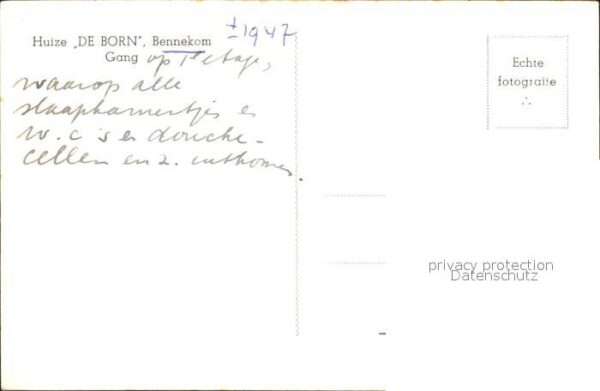 ± 1947
Huize „DE BORN", Bennekom
Gang op 1e etage,
waarop alle
slaapkamertjes en
w.c.'s en douche-
cellen en z. uitkomen.
Echte
fotografie
privacy protection
Datenschutz